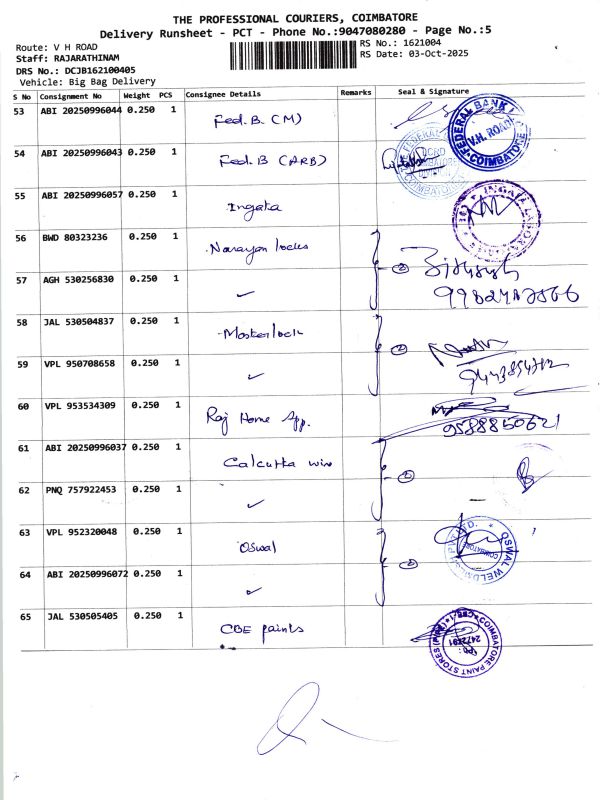 THE PROFESSIONAL COURIERS, COIMBATORE
Delivery Runsheet - PCT - Phone No.:9047080280 - Page No.:5
Route: V H ROAD
RS No.: 1621004
Staff: RAJARATHINAM
RS Date: 03-Oct-2025
DRS No.: DCJB162100405
Vehicle: Big Bag Delivery
S No Consignment No Weight PCS Consignee Details Remarks Seal & Signature
53 ABI 20250996044 0.250 1 Fed. B. (M)
FEDERAL BANK V.H. ROAD COIMBATORE
54 ABI 20250996043 0.250 1 Fed. B (ARB)
COIMBATORE
55 ABI 20250996057 0.250 1 Ingata
56 BWD 80323236 0.250 1 Narayan locks
57 AGH 530256830 0.250 1 ✓ 2
58 JAL 530504837 0.250 1 Masterlock
59 VPL 950708658 0.250 1 ✓ 2
60 VPL 953534309 0.250 1 Raj Home App.
9588850621
61 ABI 20250996037 0.250 1 Calcutta wire
62 PNQ 757922453 0.250 1 ✓ 2
63 VPL 952320048 0.250 1 Oswal
OSWAL COIMBATORE
64 ABI 20250996072 0.250 1 ✓ 2
65 JAL 530505405 0.250 1 CBE paints
COIMBATORE PAINT STORES